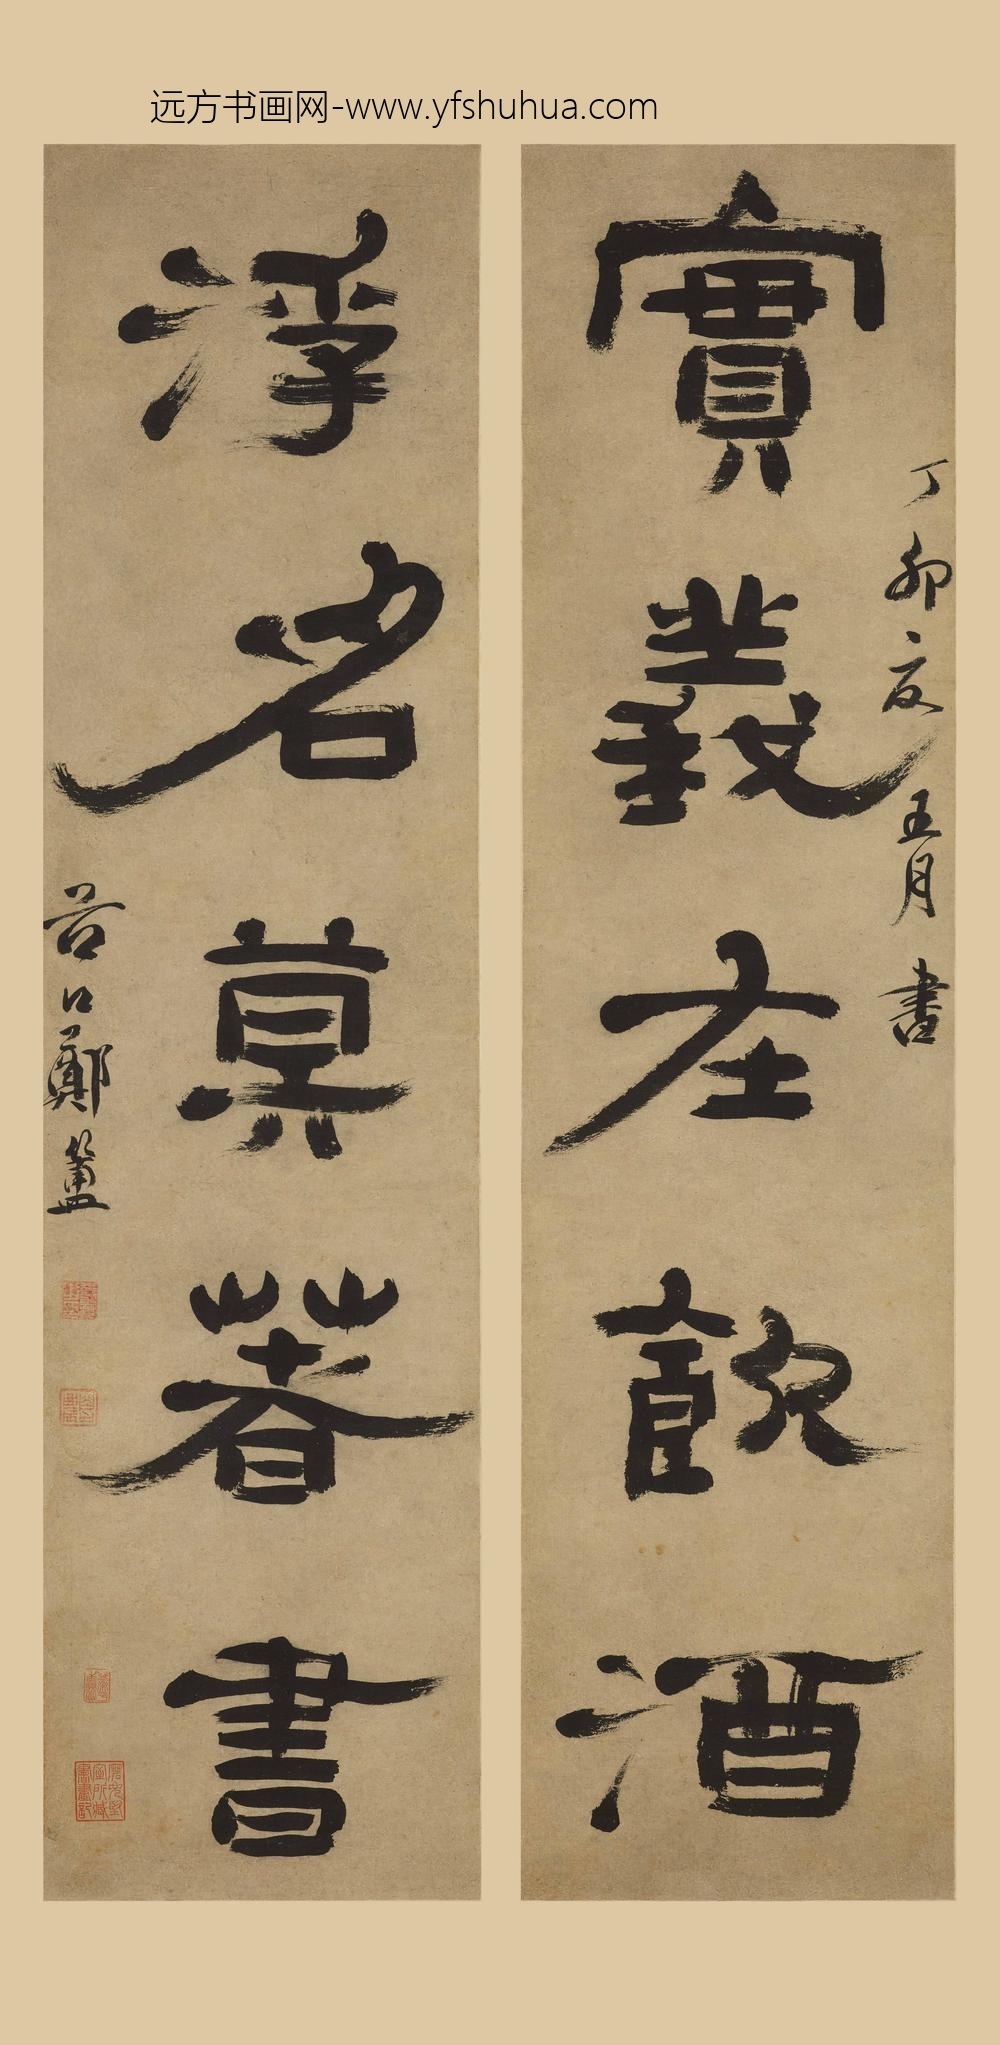 远方书画网-www.yfshuhua.com
丁卯夏五月書
實義在飲酒
浮名莫著書
谷口鄭簠